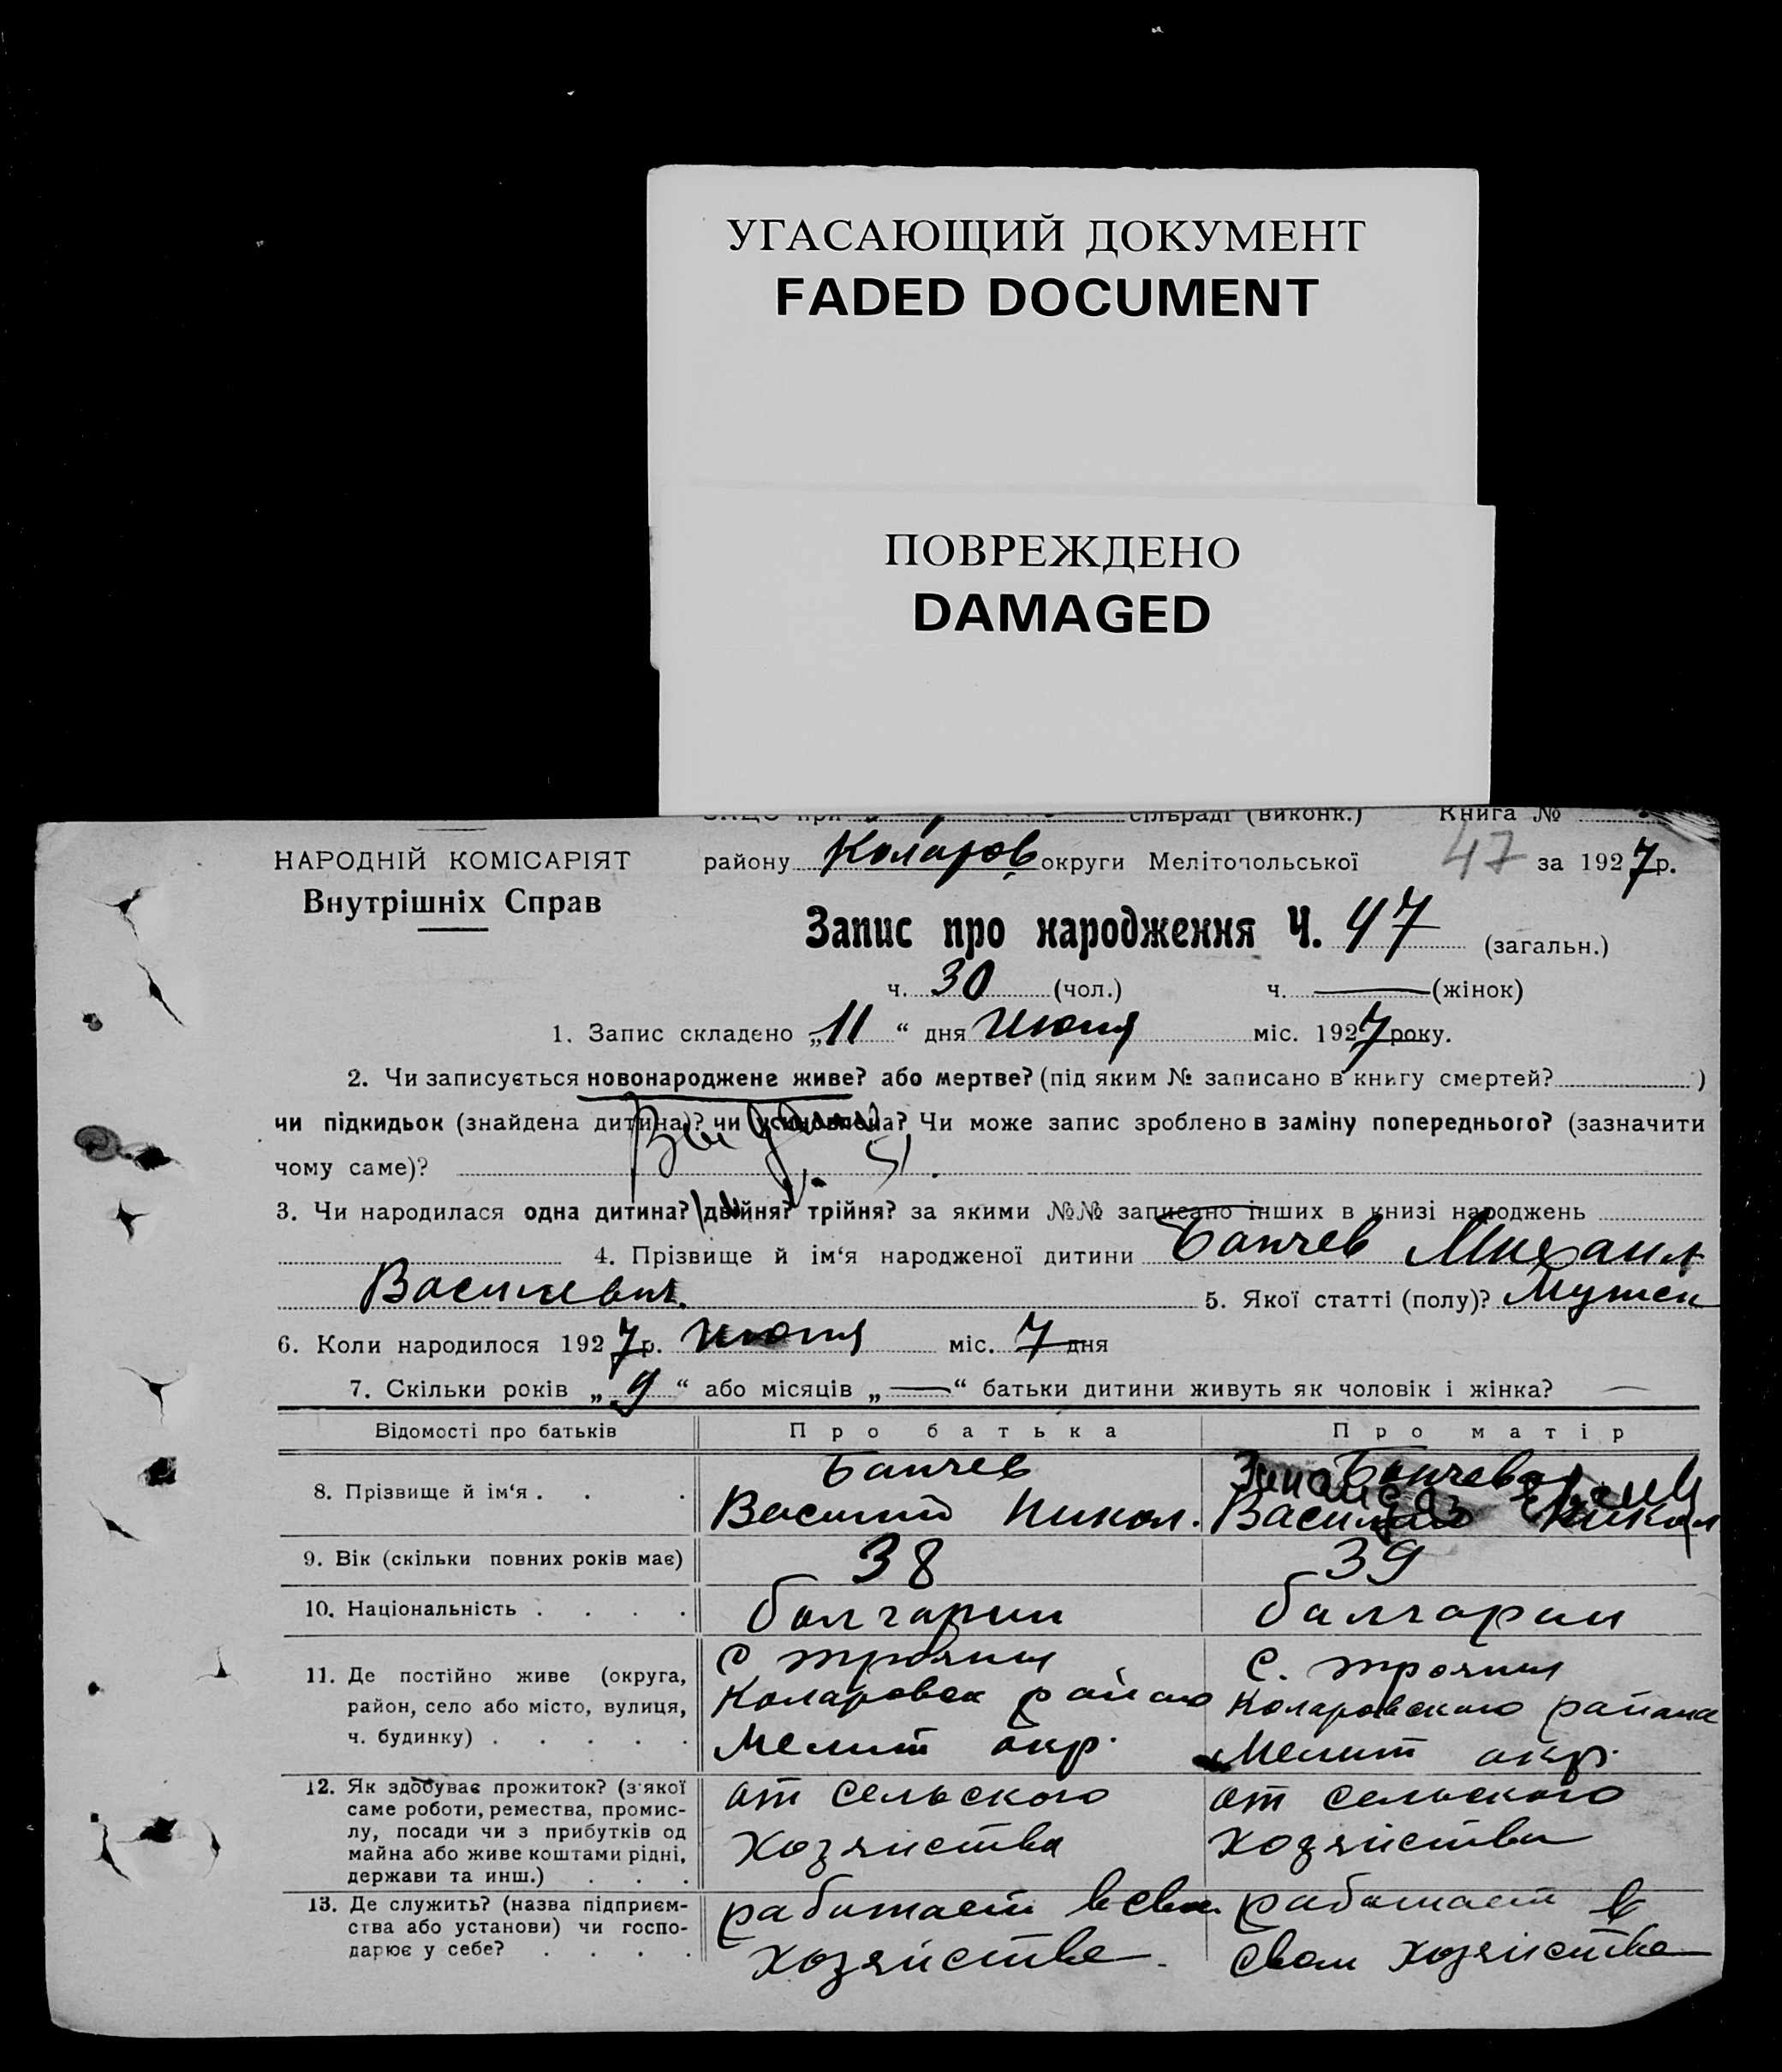 УГАСАЮЩИЙ ДОКУМЕНТ
FADED DOCUMENT
ПОВРЕЖДЕНО
DAMAGED
при сільраді (виконк.) Книга №
НАРОДНІЙ КОМІСАРІЯТ
Внутрішніх Справ
району Коларов округи Мелітопольської 47 за 1927р.
Запис про народження Ч. 47 (загальн.)
ч. 30 (чол.) ч. — (жінок)
1. Запис складено „11“ дня Июня міс. 1927 року.
2. Чи записується новонароджене живе? або мертве? (під яким № записано в книгу смертей? )
чи підкидьок (знайдена дитина)? чи усиновлена? Чи може запис зроблено в заміну попереднього? (зазначити
чому саме)?
3. Чи народилася одна дитина? двійня? трійня? за якими №№ записано інших в книзі народжень
4. Прізвище й ім‘я народженої дитини Банчев Михаил
Васильевич. 5. Якої статті (полу)? Мужск
6. Коли народилося 1927р. июня міс. 7 дня
7. Скільки років „9“ або місяців „—“ батьки дитини живуть як чоловік і жінка? —
Відомості про батьків Про батька Про матір
8. Прізвище й ім‘я . . . Банчев Василий Никол. Банчева
9. Вік (скільки повних років має) 38 39
10. Національність . . . . болгарин балгарин
11. Де постійно живе (округа, с Трояны С. Трояны
район, село або місто, вулиця, Коларовск района Коларовского района
ч. будинку) . . . . . Мелит окр. Мелит окр.
12. Як здобуває прожиток? (з якої от сельского от сельского
саме роботи, ремества, промис-
лу, посади чи з прибутків од хозяйства хозяйства
майна або живе коштами рідні,
держави та инш.) . . .
13. Де служить? (назва підприєм- работает в свои работает в
ства або установи) чи госпо-
дарює у себе? . . . . хозяйстве свои хозяйстве